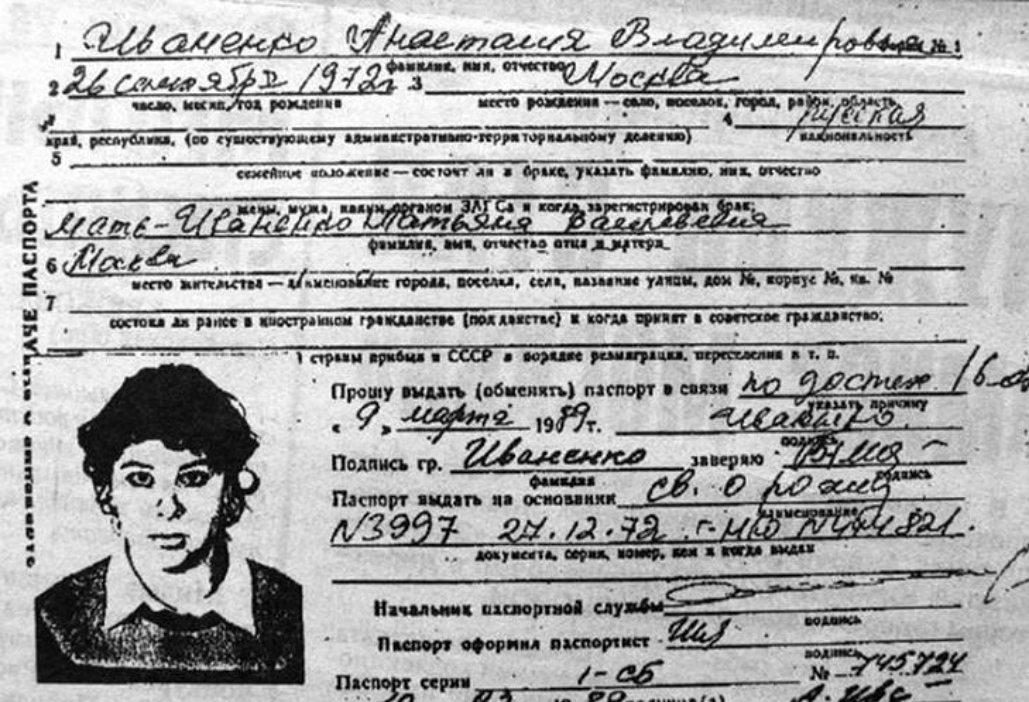 1 Иваненко Анастасия Владимировна № 1
фамилия, имя, отчество
2 26 сентября 1972г 3 Москва
число, месяц, год рождения место рождения — село, поселок, город, район, область,
4 русская
край, республика, (по существующему административно-территориальному делению) национальность
5
семейное положение — состоит ли в браке, указать фамилию, имя, отчество
жены, мужа, каким органом ЗАГСа и когда зарегистрирован брак;
Мать-Иваненко Татьяна Васильевна
фамилия, имя, отчество отца и матери
6 Москва
место жительства — наименование города, поселка, села, название улицы, дом №, корпус №, кв. №
7
состоял ли ранее в иностранном гражданстве (подданстве) и когда принят в советское гражданство;
страны прибыл в СССР в порядке реэмиграции, переселения и т. п.
Прошу выдать (обменять) паспорт в связи по достиж. 16-
указать причину
«9» марта 1989г.
подпись
Подпись гр. Иваненко заверяю
фамилия подпись
Паспорт выдать на основании св. о рожд
наименование
N3997 27.12.72
документа, серия, номер, кем и когда выдан
Начальник паспортной службы
подпись
Паспорт оформил паспортист
подпись
Паспорт серии 1-СБ № 745724
АЧЕ ПАСПОРТА